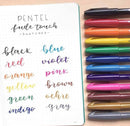 PENTEL
fude touch
FEATURES
black blue
red violet
orange pink
yellow brown
green ochre
indigo gray